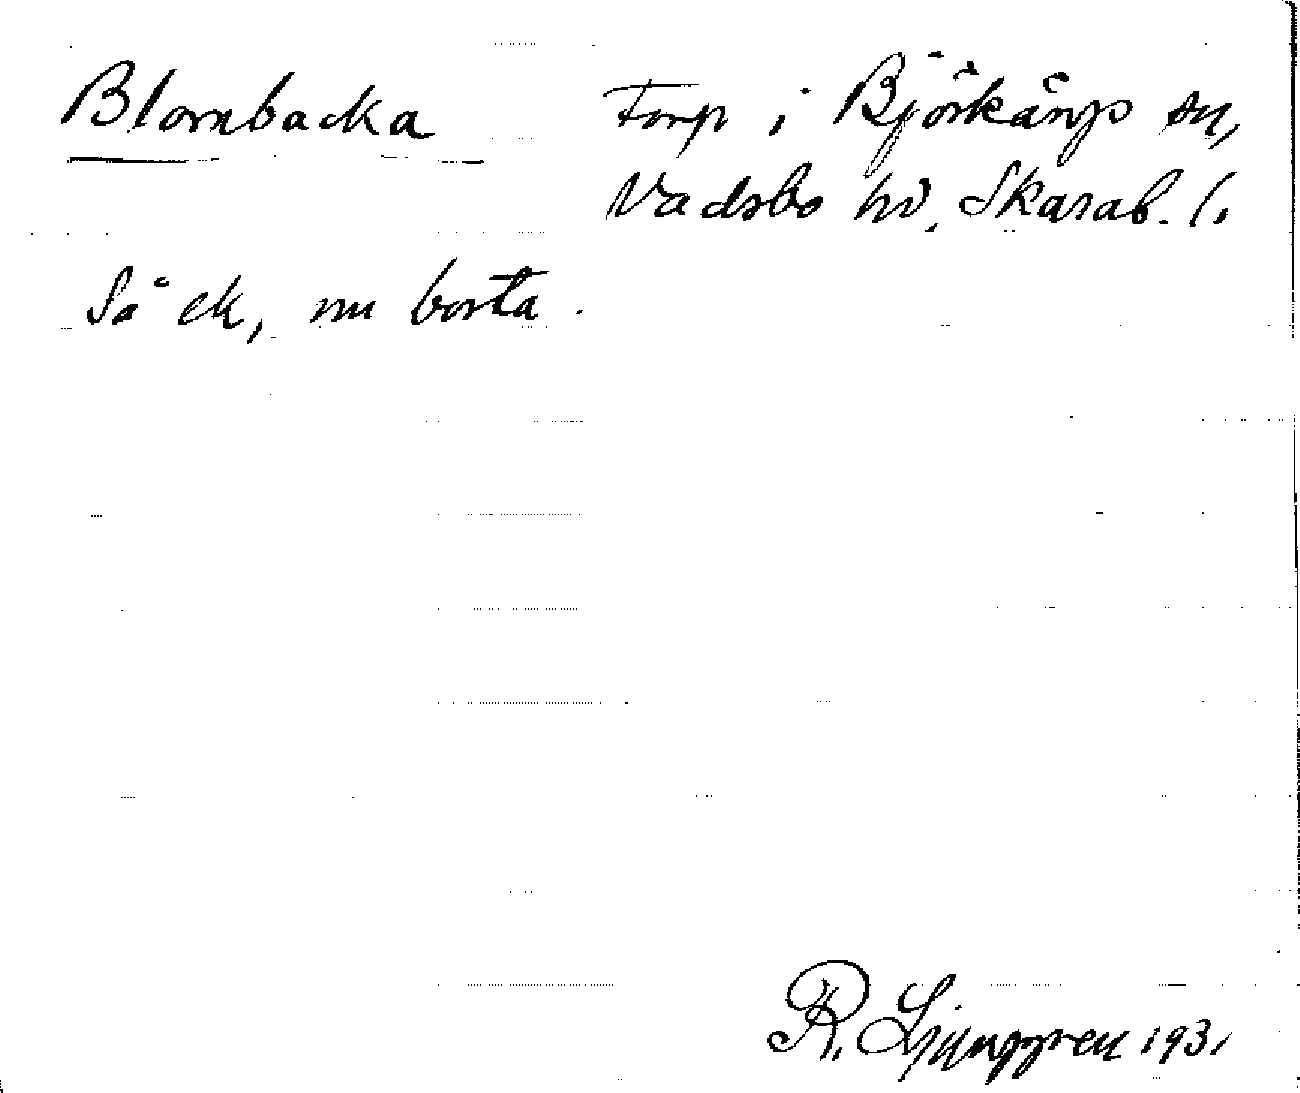 Blombacka Torp i Björkängs sn,
Vadsbo hd, Skarab. l.
Så ek, nu borta.
R. Ljunggren 1931